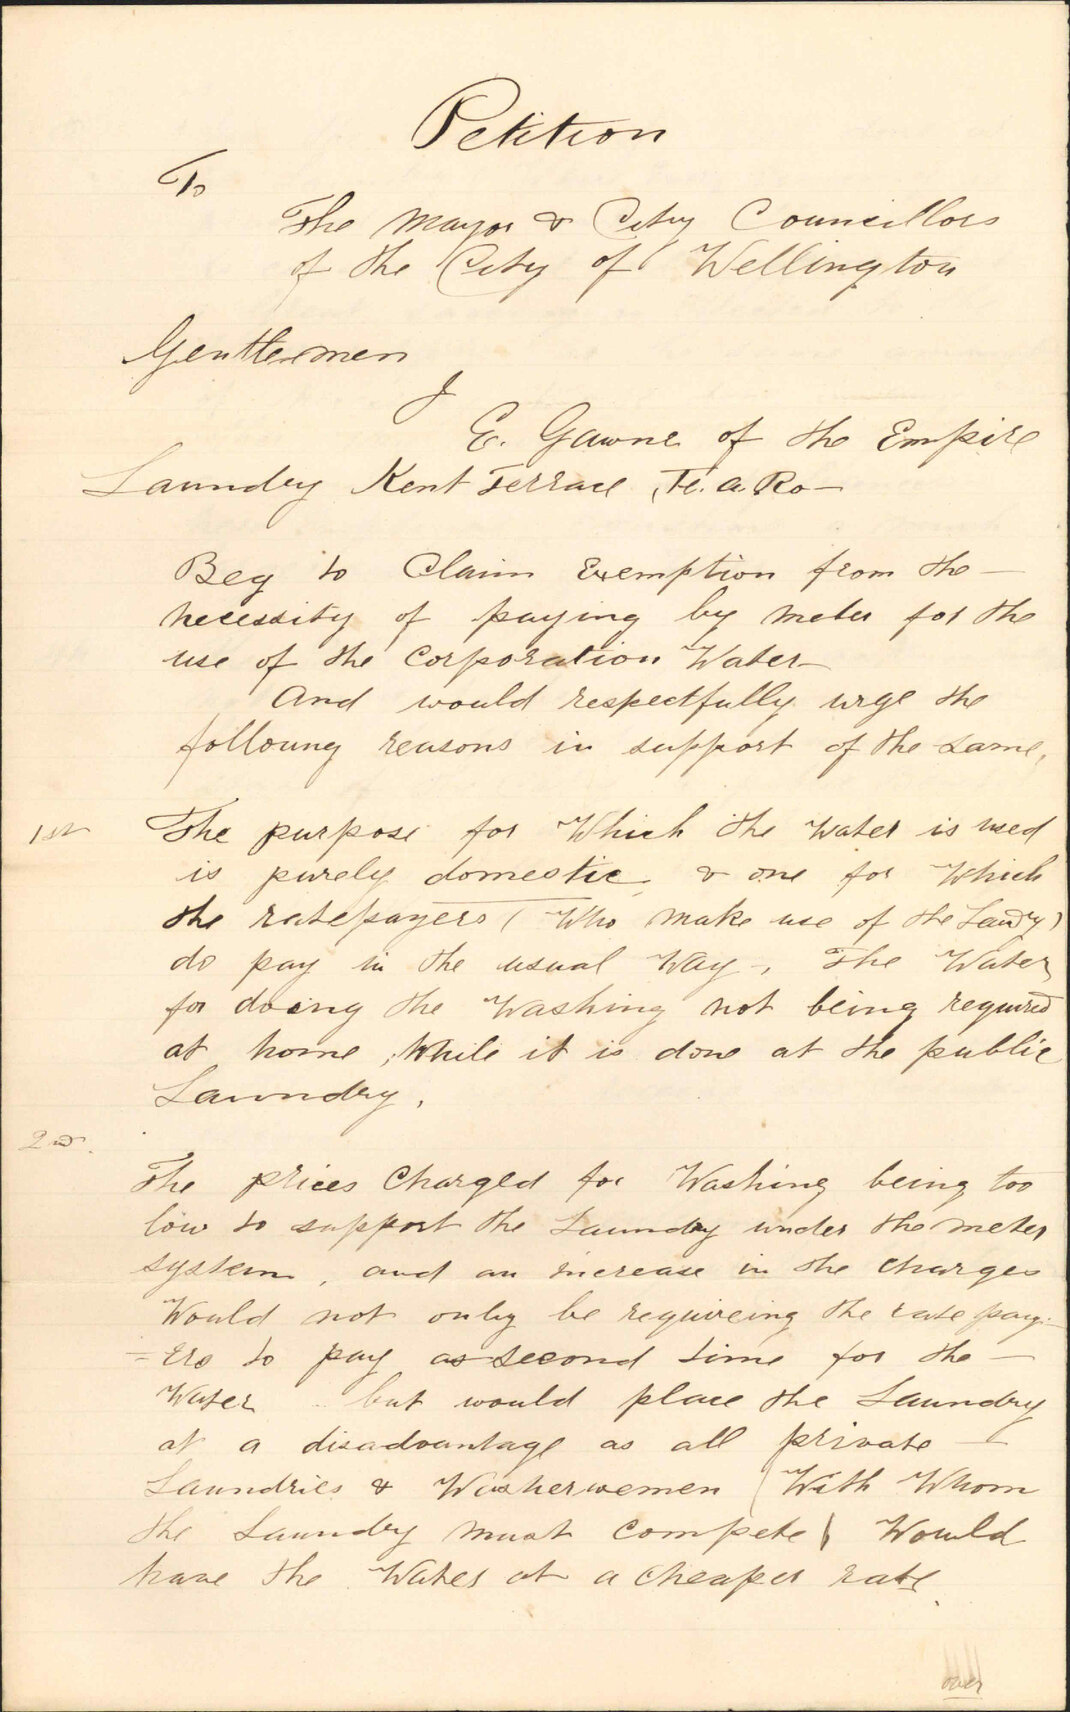 Petition
To
The Mayor & City Councillors
of the City of Wellington
Gentlemen
I
E. Gawne of the Empire
Laundry Kent Terrace, Te. a. Ro—
Beg to Claim Exemption from the —
necessity of paying by meter for the
use of the Corporation Water—
And would respectfully urge the
following reasons in support of the same,
1st The purpose for Which the Water is used
is purely domestic & one for Which
the ratepayers (Who make use of the Laundry)
do pay in the usual Way—, The Water
for doing the Washing not being required
at home, While it is done at the public
Laundry.
2nd.
The prices Charged for Washing being too
low to support the Laundry under the meter
system, and an increase in the charges
Would not only be requireing the rate pay-
=ers to pay a second time for the —
Water but would place the Laundry
at a disadvantage as all private —
Laundries & Washerwemen (With Whom
the Laundry must compete) Would
have the Water at a cheaper rate.
over